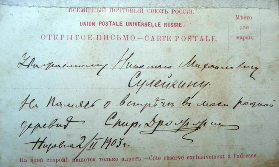 ВСЕМІРНЫЙ ПОЧТОВЫЙ СОЮЗЪ. РОССІЯ.
UNION POSTALE UNIVERSELLE. RUSSIE.
ОТКРЫТОЕ ПИСЬМО — CARTE POSTALE.
Мѣсто
для
марки.
Николаю Михайловичу
Сулейкину.
На память о встрѣчѣ въ моей родной
деревнѣ. Спир. Дрожжинъ
1903 г.
На этой сторонѣ пишется только адресъ. — Côté réservé exclusivement à l'adresse.